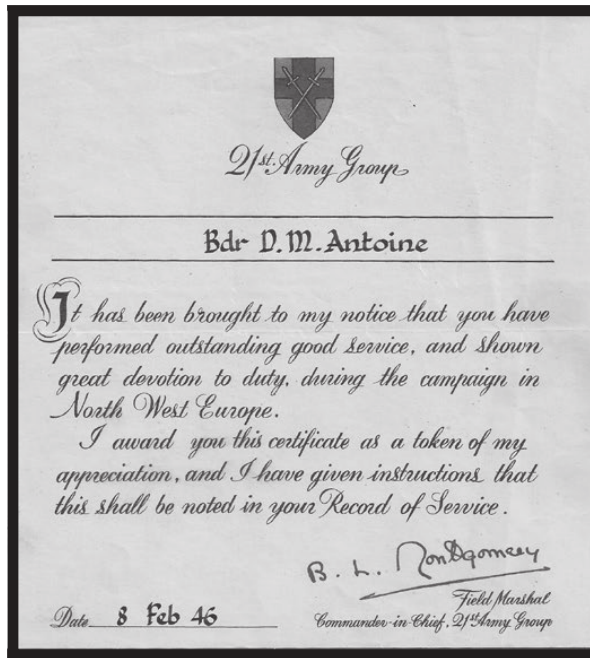 21st. Army Group
Bdr D.M. Antoine
It has been brought to my notice that you have
performed outstanding good service, and shown
great devotion to duty, during the campaign in
North West Europe.
I award you this certificate as a token of my
appreciation, and I have given instructions that
this shall be noted in your Record of Service.
B. L. Montgomery
Field Marshal
Date 8 Feb 46 Commander-in-Chief, 21st Army Group